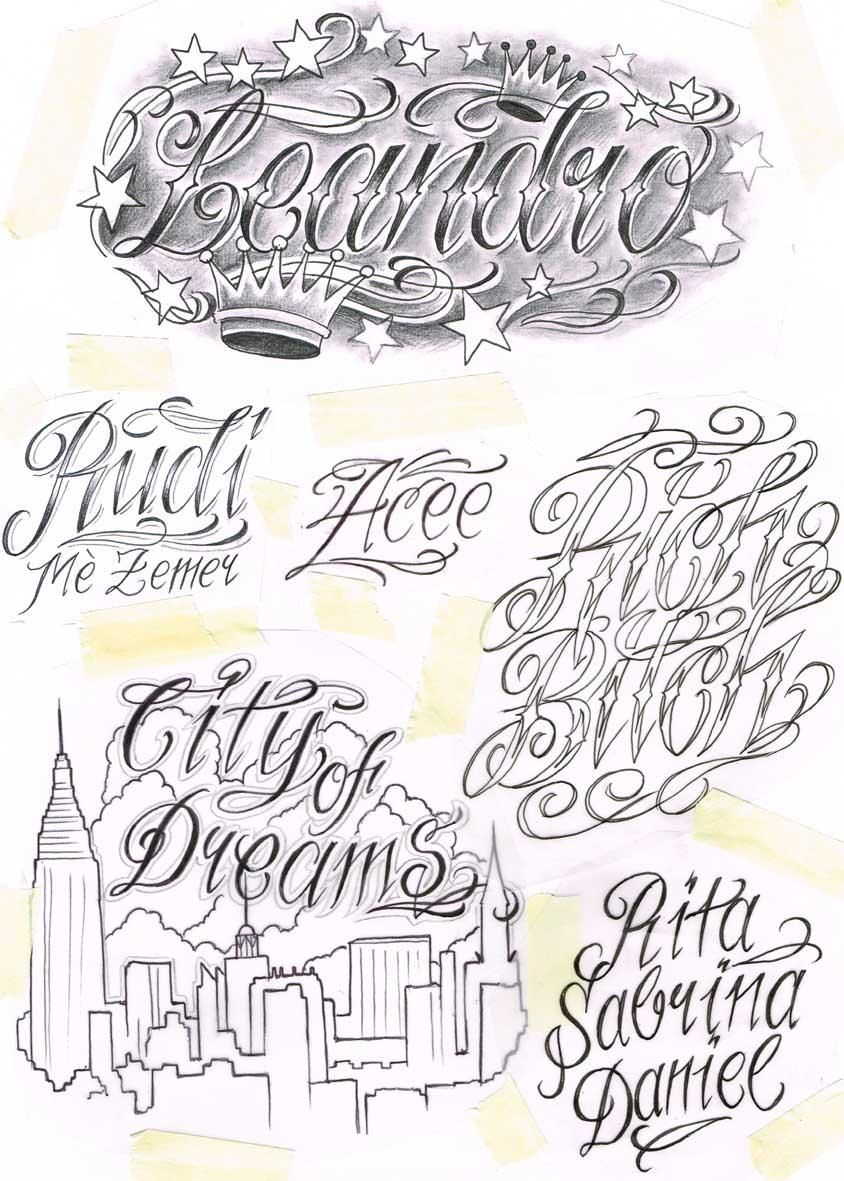 Leandro
Rudi
Mè Zemer
Acee
Rich
Bitch
City
of
Dreams
Rita
Sabrina
Daniel